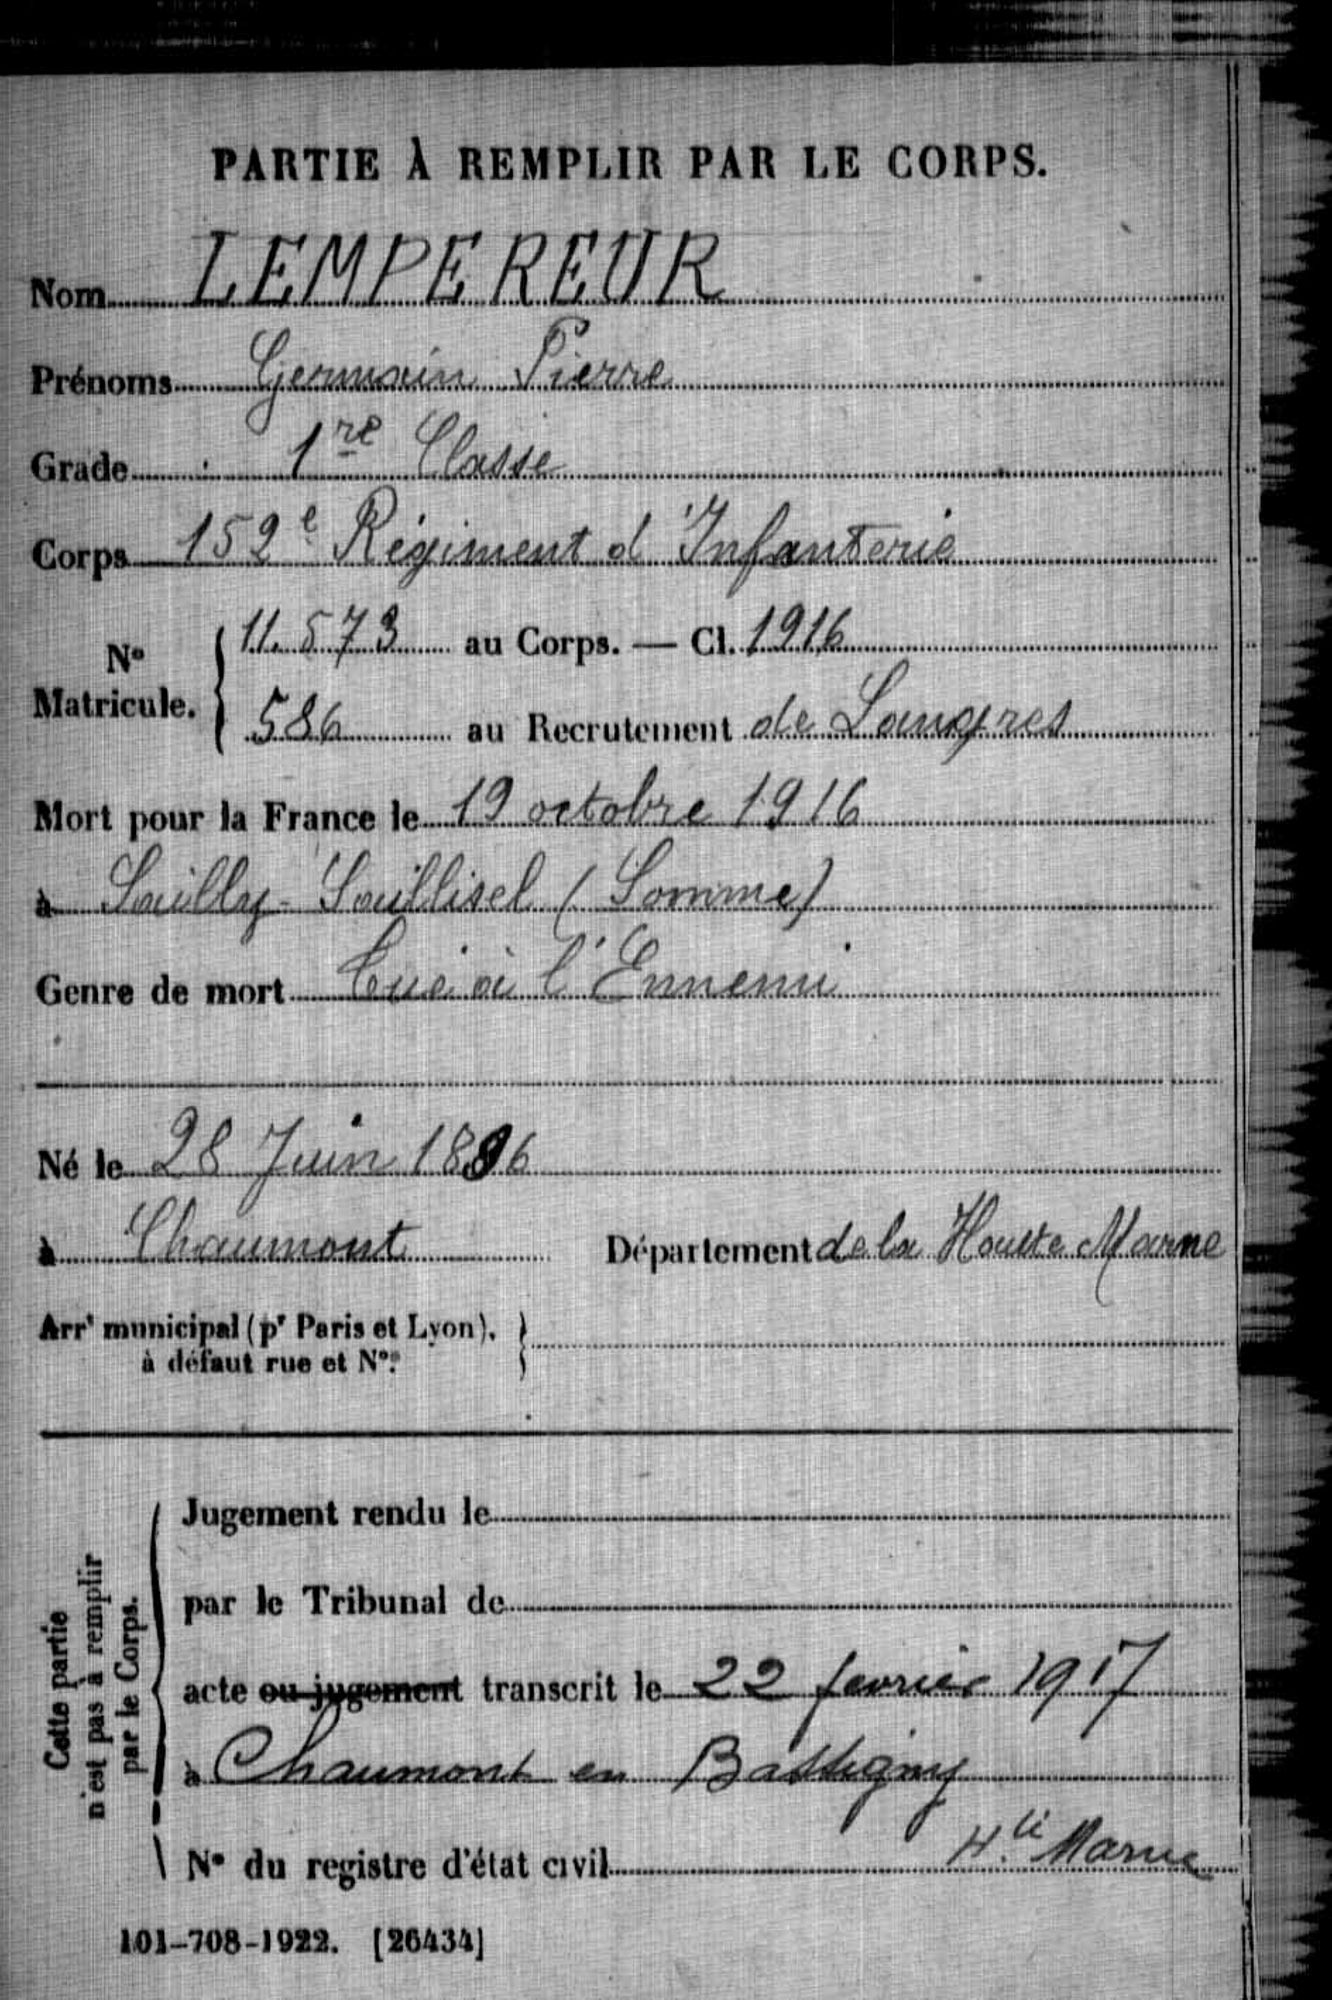 PARTIE À REMPLIR PAR LE CORPS.
Nom LEMPEREUR
Prénoms Germain Pierre
Grade 1re Classe
Corps 152e Régiment d'Infanterie
No Matricule. 11.573 au Corps. — Cl. 1916
586 au Recrutement de Langres
Mort pour la France le 19 octobre 1916
à Sailly-Saillisel (Somme)
Genre de mort Tué à l'Ennemi
Né le 28 Juin 1896
à Chaumont Département de la Haute Marne
Arrt municipal (pr Paris et Lyon),
à défaut rue et No.
Cette partie
n'est pas à remplir
par le Corps.
Jugement rendu le
par le Tribunal de
acte ou jugement transcrit le 22 fevrier 1917
à Chaumont en Bassigny
Hte Marne
No du registre d'état civil
101-708-1922. [26434]